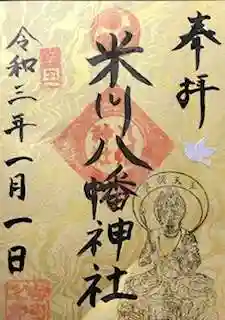 奉拝
米川八幡神社
令和三年一月一日